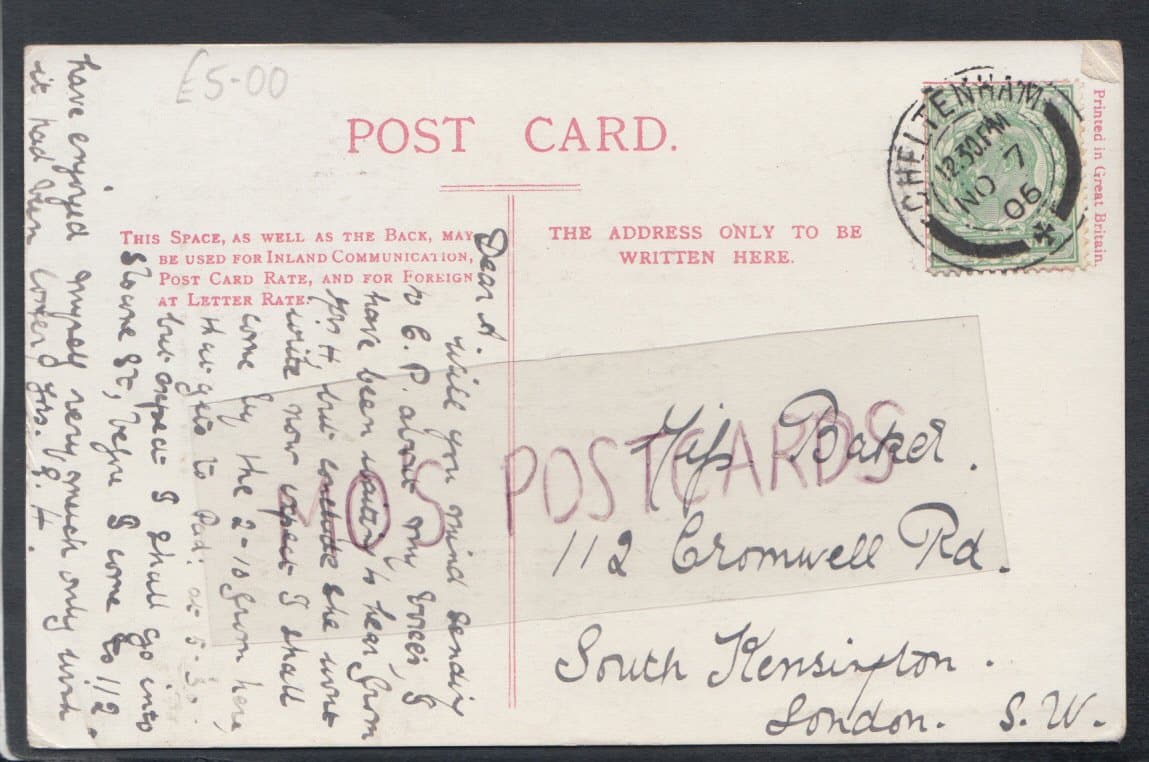 £5-00
POST CARD.
Printed in Great Britain.
CHELTENHAM
12.30PM
NO 7
06
THIS SPACE, AS WELL AS THE BACK, MAY
BE USED FOR INLAND COMMUNICATION,
POST CARD RATE, AND FOR FOREIGN
AT LETTER RATE.
THE ADDRESS ONLY TO BE
WRITTEN HERE.
Dear A.
Will you mind sending
to C. P. about my I
have been waiting to hear from
Mrs H. but conclude she wont
write now expect I shall
come by the 2-10 from here,
that gets to Pad: at 5-30.
but expect I shall go into
Sloane St, before I come to 112.
have enjoyed myself very much only wish
it had been yrs. G. H.
Miss Baker.
112 Cromwell Rd.
South Kensington.
London. S. W.
MOS POSTCARDS